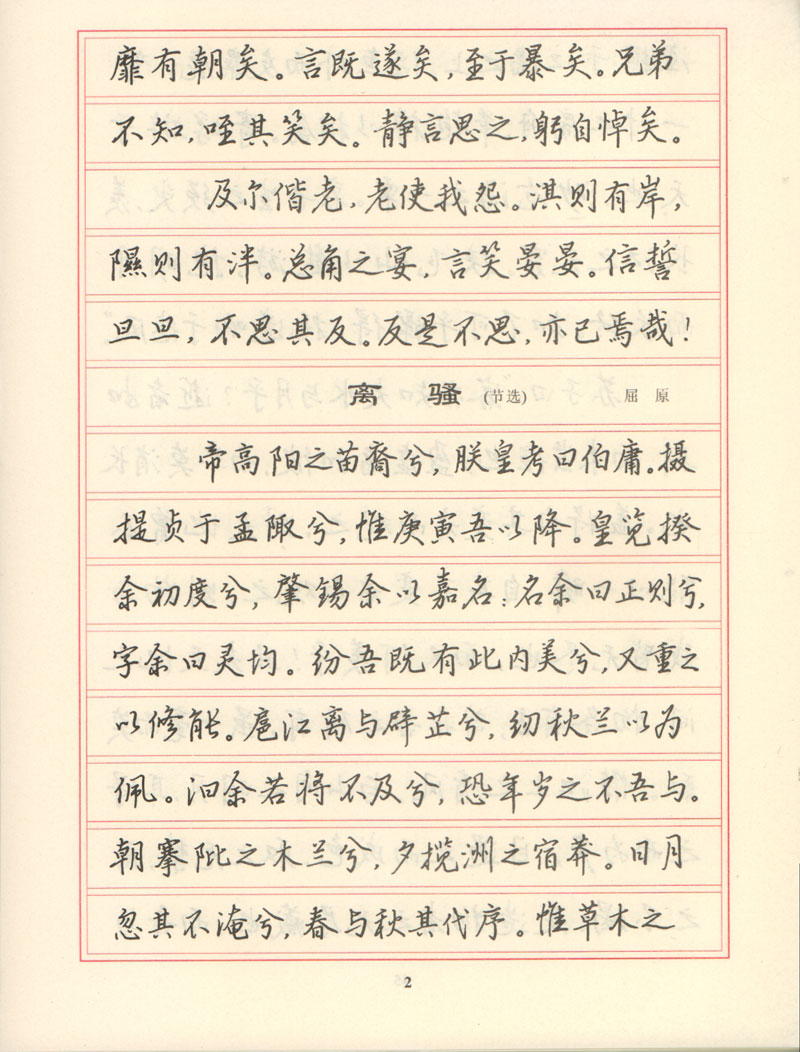 靡有朝矣。言既遂矣，至于暴矣。兄弟
不知，咥其笑矣。静言思之，躬自悼矣。
及尔偕老，老使我怨。淇则有岸，
隰则有泮。总角之宴，言笑晏晏。信誓
旦旦，不思其反。反是不思，亦已焉哉！
离 骚 (节选) 屈 原
帝高阳之苗裔兮，朕皇考曰伯庸。摄
提贞于孟陬兮，惟庚寅吾以降。皇览揆
余初度兮，肇锡余以嘉名：名余曰正则兮，
字余曰灵均。纷吾既有此内美兮，又重之
以修能。扈江离与辟芷兮，纫秋兰以为
佩。汩余若将不及兮，恐年岁之不吾与。
朝搴阰之木兰兮，夕揽洲之宿莽。日月
忽其不淹兮，春与秋其代序。惟草木之
2